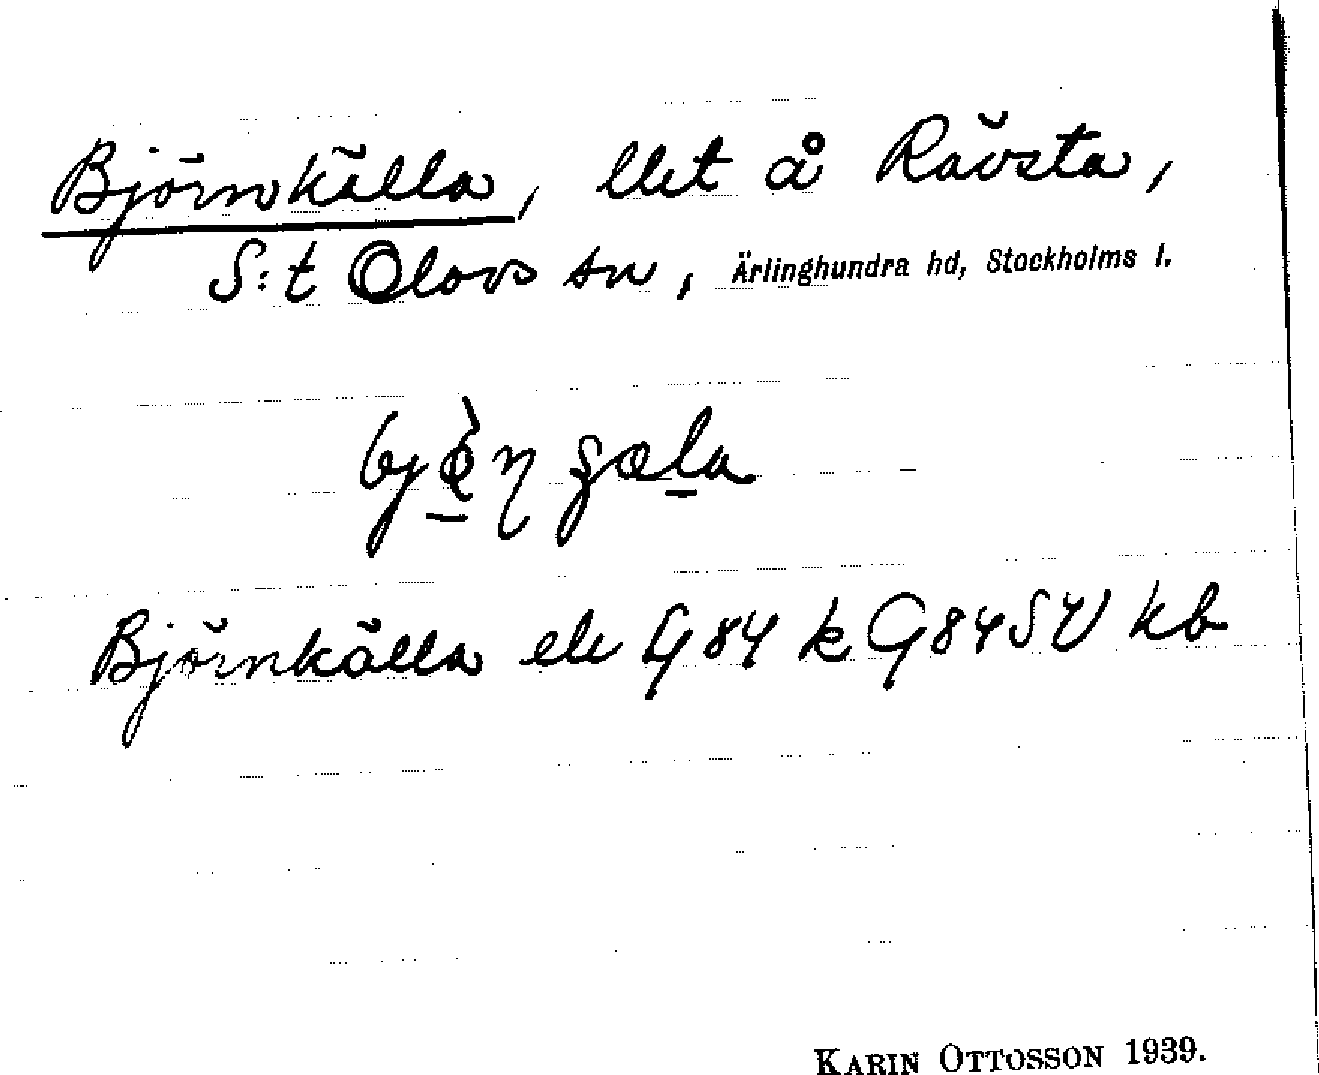 Björnkälla, llet å Rävsta,
S:t Olovs sn, Ärlinghundra hd, Stockholms l.
Björnkälla ele G84 k G84SV kb
KARIN OTTOSSON 1939.